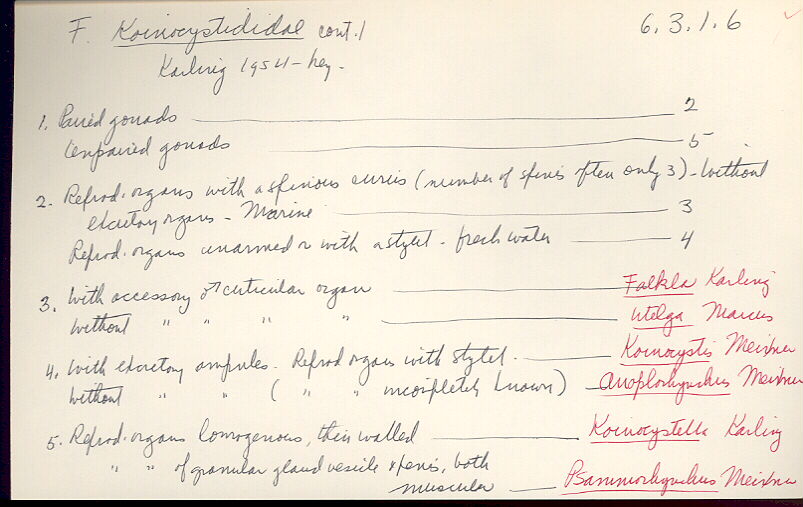 F. Koinocystididae cont.1 6.3.1.6
Karling 1954 - key.
1. Paired gonads 2
Unpaired gonads 5
2. Reprod. organs with a spinous cirrus (number of spines often only 3) - Without
excretory organs - Marine 3
Reprod. organs unarmed or with a stylet - fresh water 4
3. With accessory ♂ cuticular organ Falkla Karling
Without " " " " Utelga Marcus
4. With excretory ampules. Reprod organs with stylet. Koinocystis Meixner
Without " " ( " " incompletely known) Anoplorhynchus Meixner
5. Reprod. organs homogenous, thin walled Koinocystella Karling
" " of granular gland vesicle & penis, both
muscular Psammorhynchus Meixner